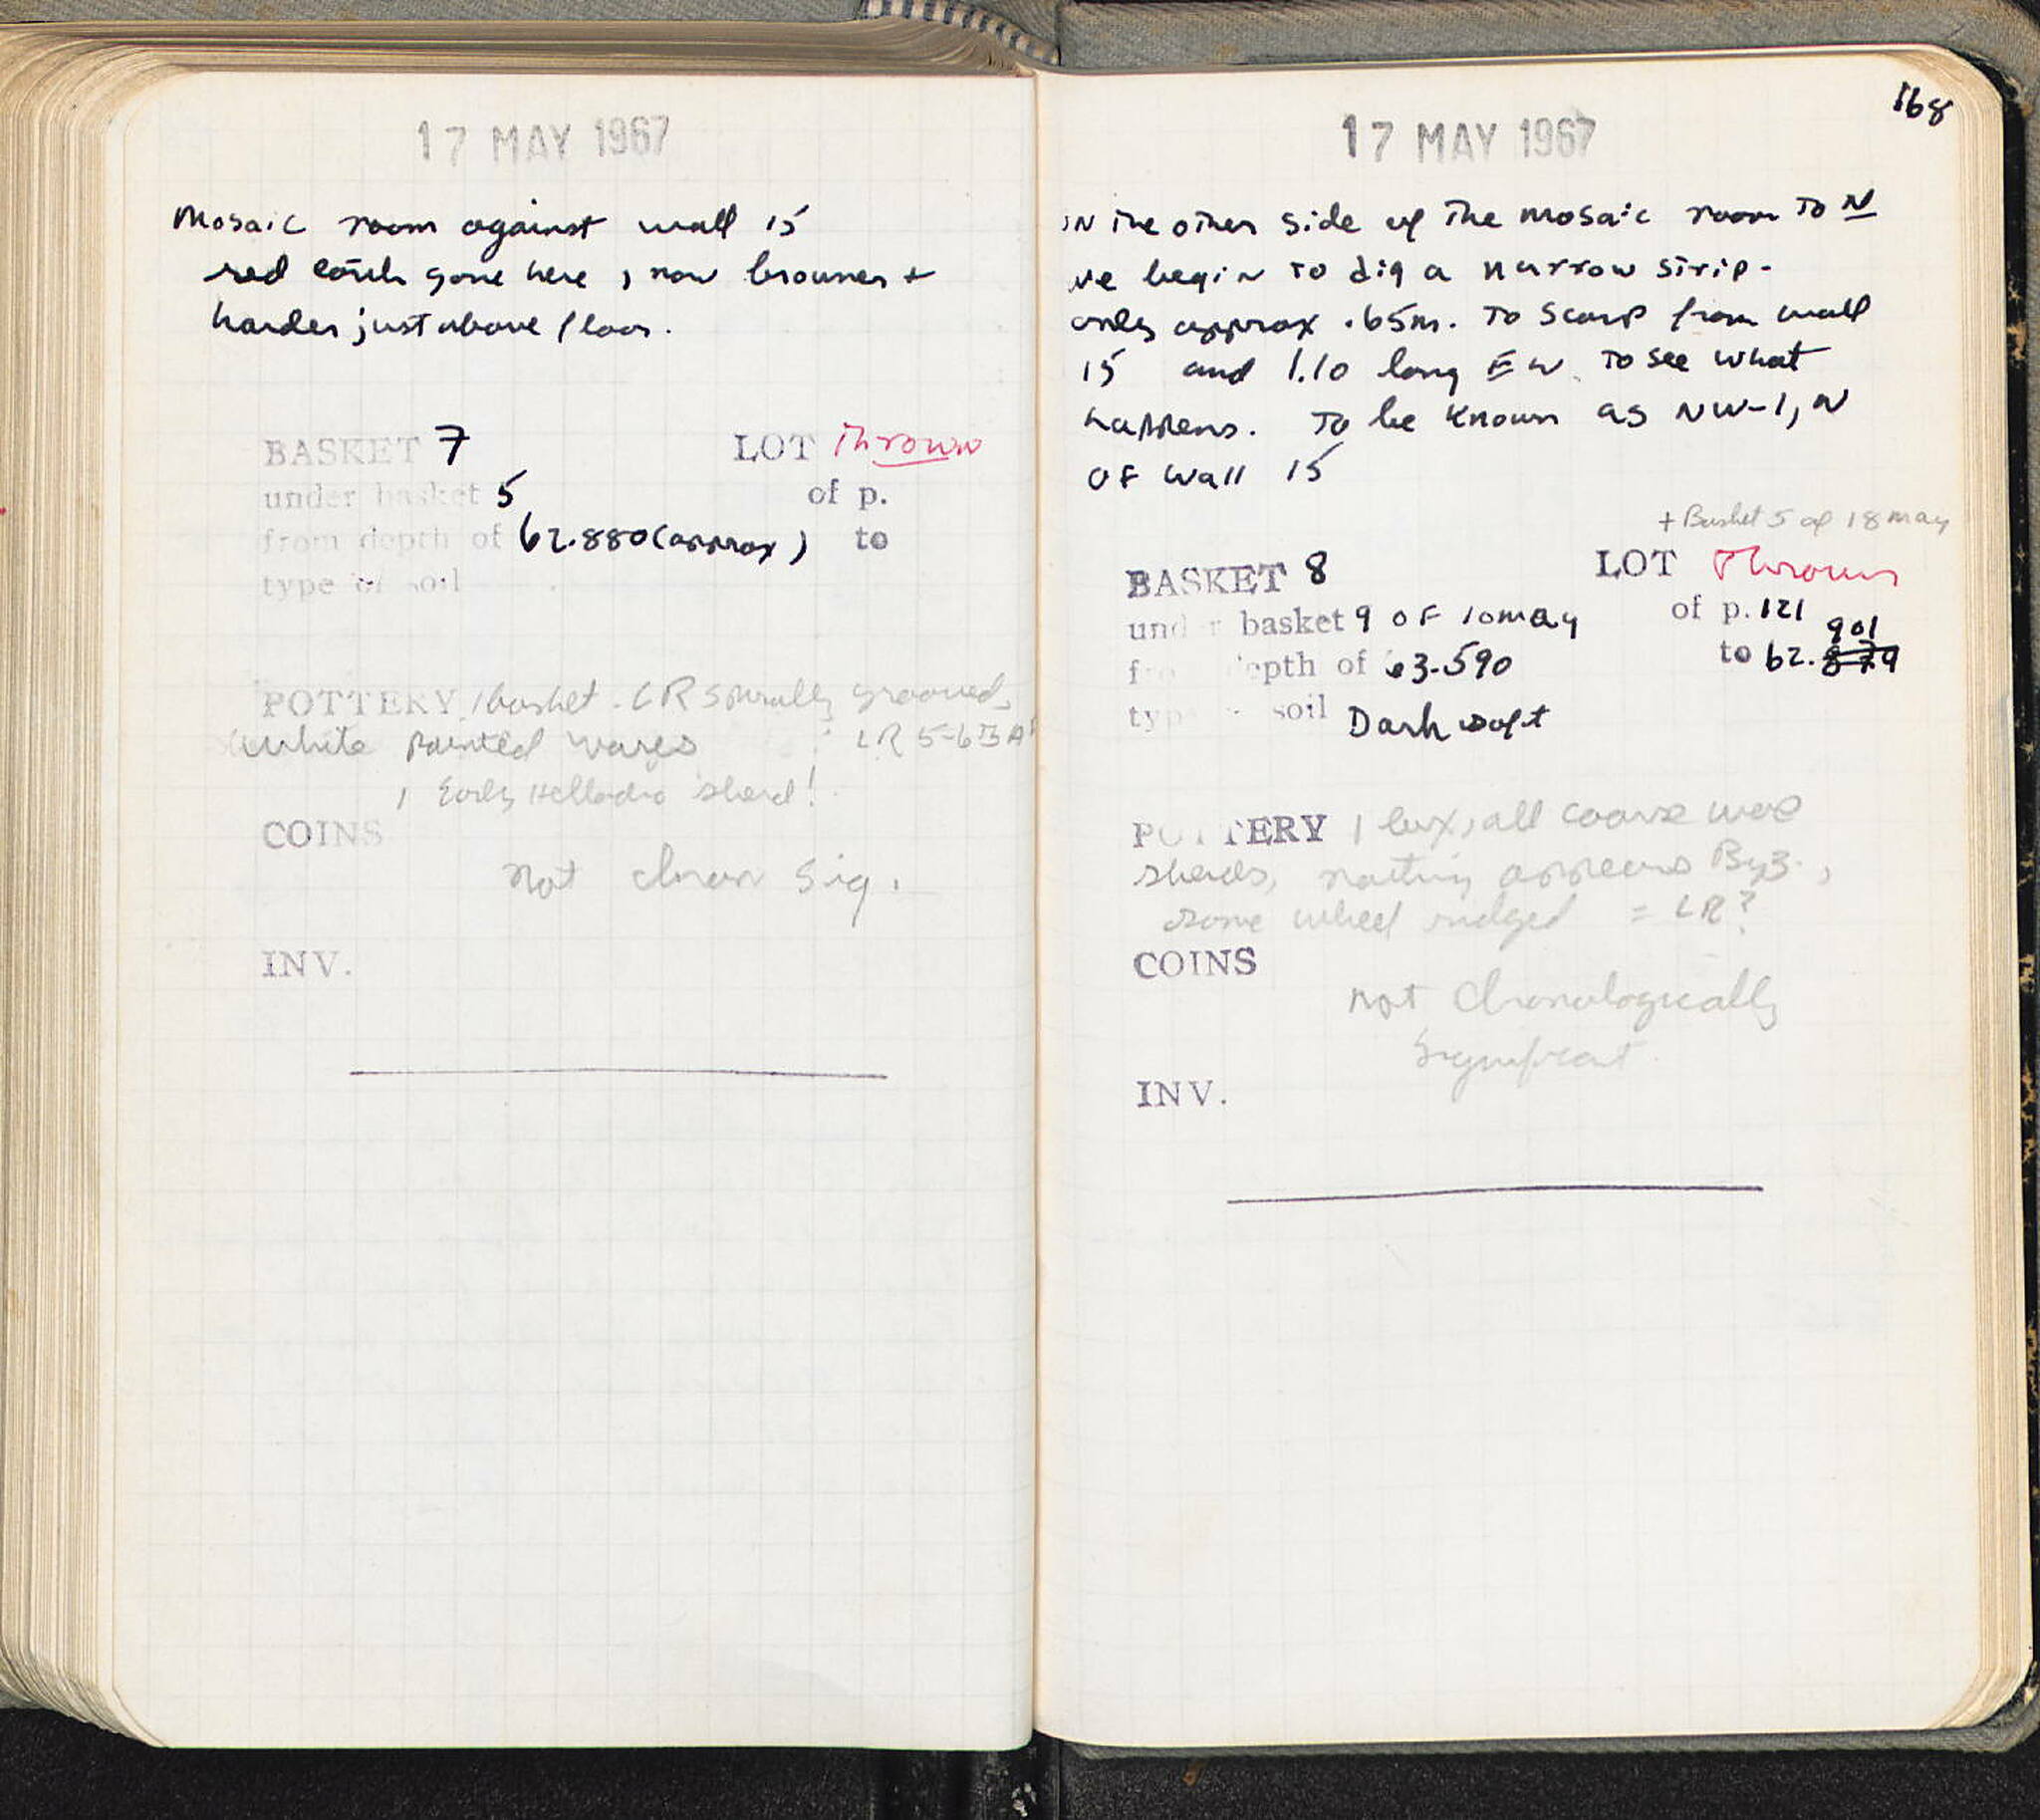 17 MAY 1967
Mosaic room against wall 15
red earth gone here, now browner +
harder just above floor.
BASKET 7 LOT Thrown
under basket 5 of p.
from depth of 62.880 (approx) to
type of soil
POTTERY 1 basket - LR spirally grooved,
white painted wares LR 5-6
1 Early Helladic sherd!
COINS
not chron sig.
INV.
168
17 MAY 1967
on the other side of the mosaic room to N
we begin to dig a narrow strip -
only approx .65m. to scarp from wall
15 and 1.10 long EW to see what
happens. To be known as NW-1, N
of wall 15
+ Basket 5 of 18 may
BASKET 8 LOT Thrown
under basket 9 OF 10 may of p. 121
901
from depth of 63.590 to 62.879
type of soil Dark soft
POTTERY 1 box, all coarse ware
sherds, nothing appears Byz.,
some wheel ridged = LR?
COINS
not Chronologically
significant.
INV.